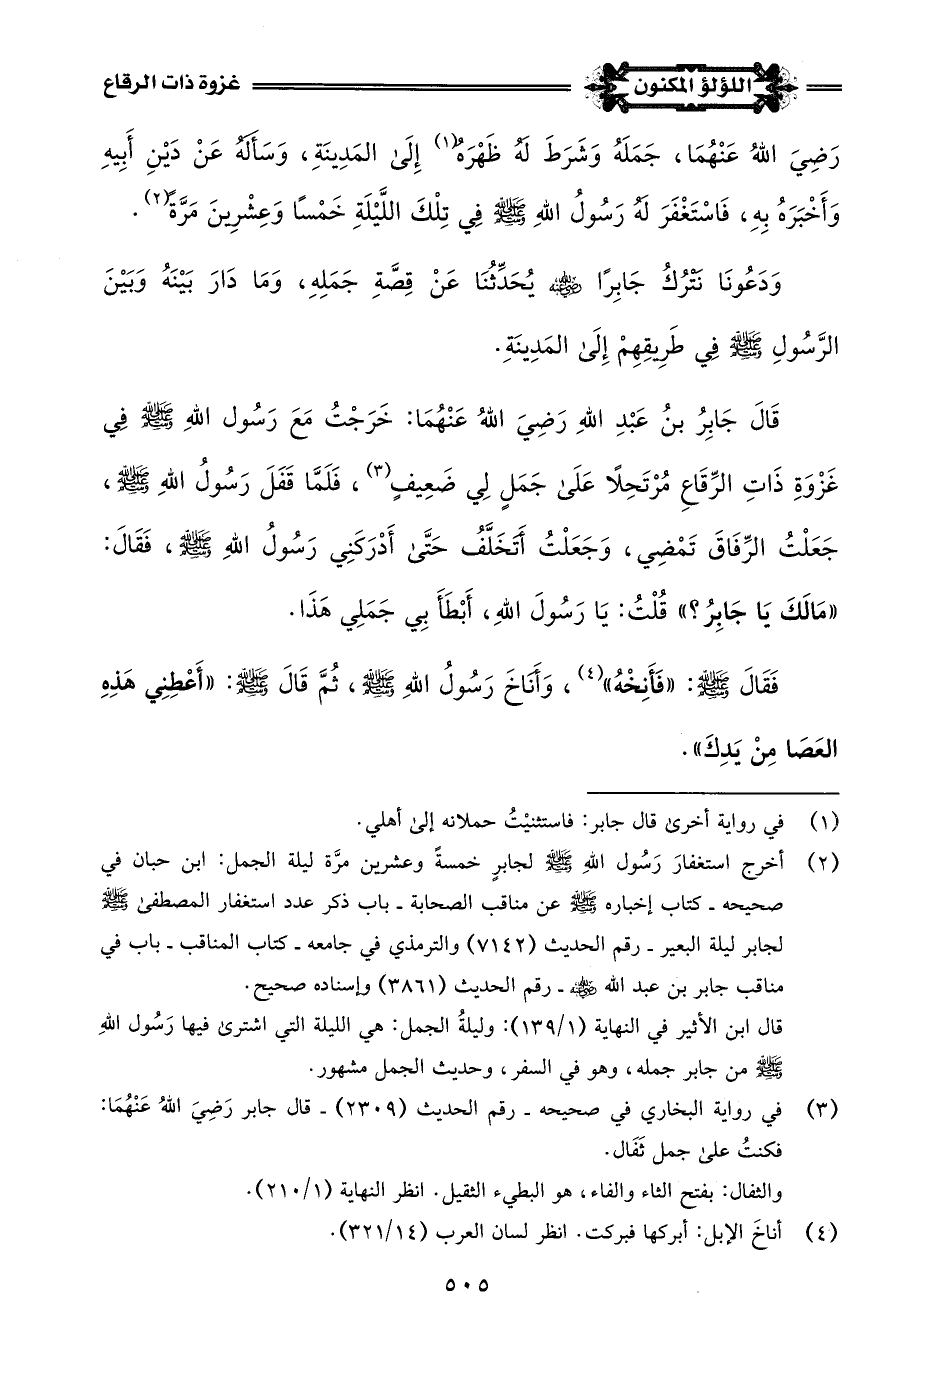 اللؤلؤ المكنون غزوة ذات الرقاع
رَضِيَ اللهُ عَنْهُمَا، جَمَلَهُ وَشَرَطَ لَهُ ظَهْرَهُ(١) إِلَىٰ المَدِينَةِ، وَسَأَلَهُ عَنْ دَيْنِ أَبِيهِ
وَأَخْبَرَهُ بِهِ، فَاسْتَغْفَرَ لَهُ رَسُولُ اللهِ ﷺ فِي تِلْكَ اللَّيْلَةِ خَمْسًا وَعِشْرِينَ مَرَّةً(٢).
وَدَعُونَا نَتْرُكُ جَابِرًا رضي الله عنه يُحَدِّثُنَا عَنْ قِصَّةِ جَمَلِهِ، وَمَا دَارَ بَيْنَهُ وَبَيْنَ
الرَّسُولِ ﷺ فِي طَرِيقِهِمْ إِلَىٰ المَدِينَةِ.
قَالَ جَابِرُ بنُ عَبْدِ اللهِ رَضِيَ اللهُ عَنْهُمَا: خَرَجْتُ مَعَ رَسُولِ اللهِ ﷺ فِي
غَزْوَةِ ذَاتِ الرِّقَاعِ مُرْتَحِلًا عَلَىٰ جَمَلٍ لِي ضَعِيفٍ(٣)، فَلَمَّا قَفَلَ رَسُولُ اللهِ ﷺ،
جَعَلْتُ الرِّفَاقَ تَمْضِي، وَجَعَلْتُ أَتَخَلَّفُ حَتَّىٰ أَدْرَكَنِي رَسُولُ اللهِ ﷺ، فَقَالَ:
«مَالَكَ يَا جَابِرُ؟» قُلْتُ: يَا رَسُولَ اللهِ، أَبْطَأَ بِي جَمَلِي هَذَا.
فَقَالَ ﷺ: «فَأَنِخْهُ»(٤)، وَأَنَاخَ رَسُولُ اللهِ ﷺ، ثُمَّ قَالَ ﷺ: «أَعْطِنِي هَذِهِ
العَصَا مِنْ يَدِكَ».
(١) في رواية أخرىٰ قال جابر: فاستثنيْتُ حملانه إلىٰ أهلي.
(٢) أخرج استغفارَ رَسُولِ اللهِ ﷺ لجابرٍ خمسةً وعشرين مرَّة ليلة الجمل: ابن حبان في
صحيحه ـ كتاب إخباره ﷺ عن مناقب الصحابة ـ باب ذكر عدد استغفار المصطفىٰ ﷺ
لجابر ليلة البعير ـ رقم الحديث (٧١٤٢) والترمذي في جامعه ـ كتاب المناقب ـ باب في
مناقب جابر بن عبد الله رضي الله عنه ـ رقم الحديث (٣٨٦١) وإسناده صحيح.
قال ابن الأثير في النهاية (١٣٩/١): وليلةُ الجمل: هي الليلة التي اشترىٰ فيها رَسُول اللهِ
ﷺ من جابر جمله، وهو في السفر، وحديث الجمل مشهور.
(٣) في رواية البخاري في صحيحه ـ رقم الحديث (٢٣٠٩) ـ قال جابر رَضِيَ اللهُ عَنْهُمَا:
فكنتُ علىٰ جمل ثَفَال.
والثفال: بفتح الثاء والفاء، هو البطيء الثقيل. انظر النهاية (٢١٠/١).
(٤) أناخَ الإبل: أبركها فبركت. انظر لسان العرب (٣٢١/١٤).
٥٠٥